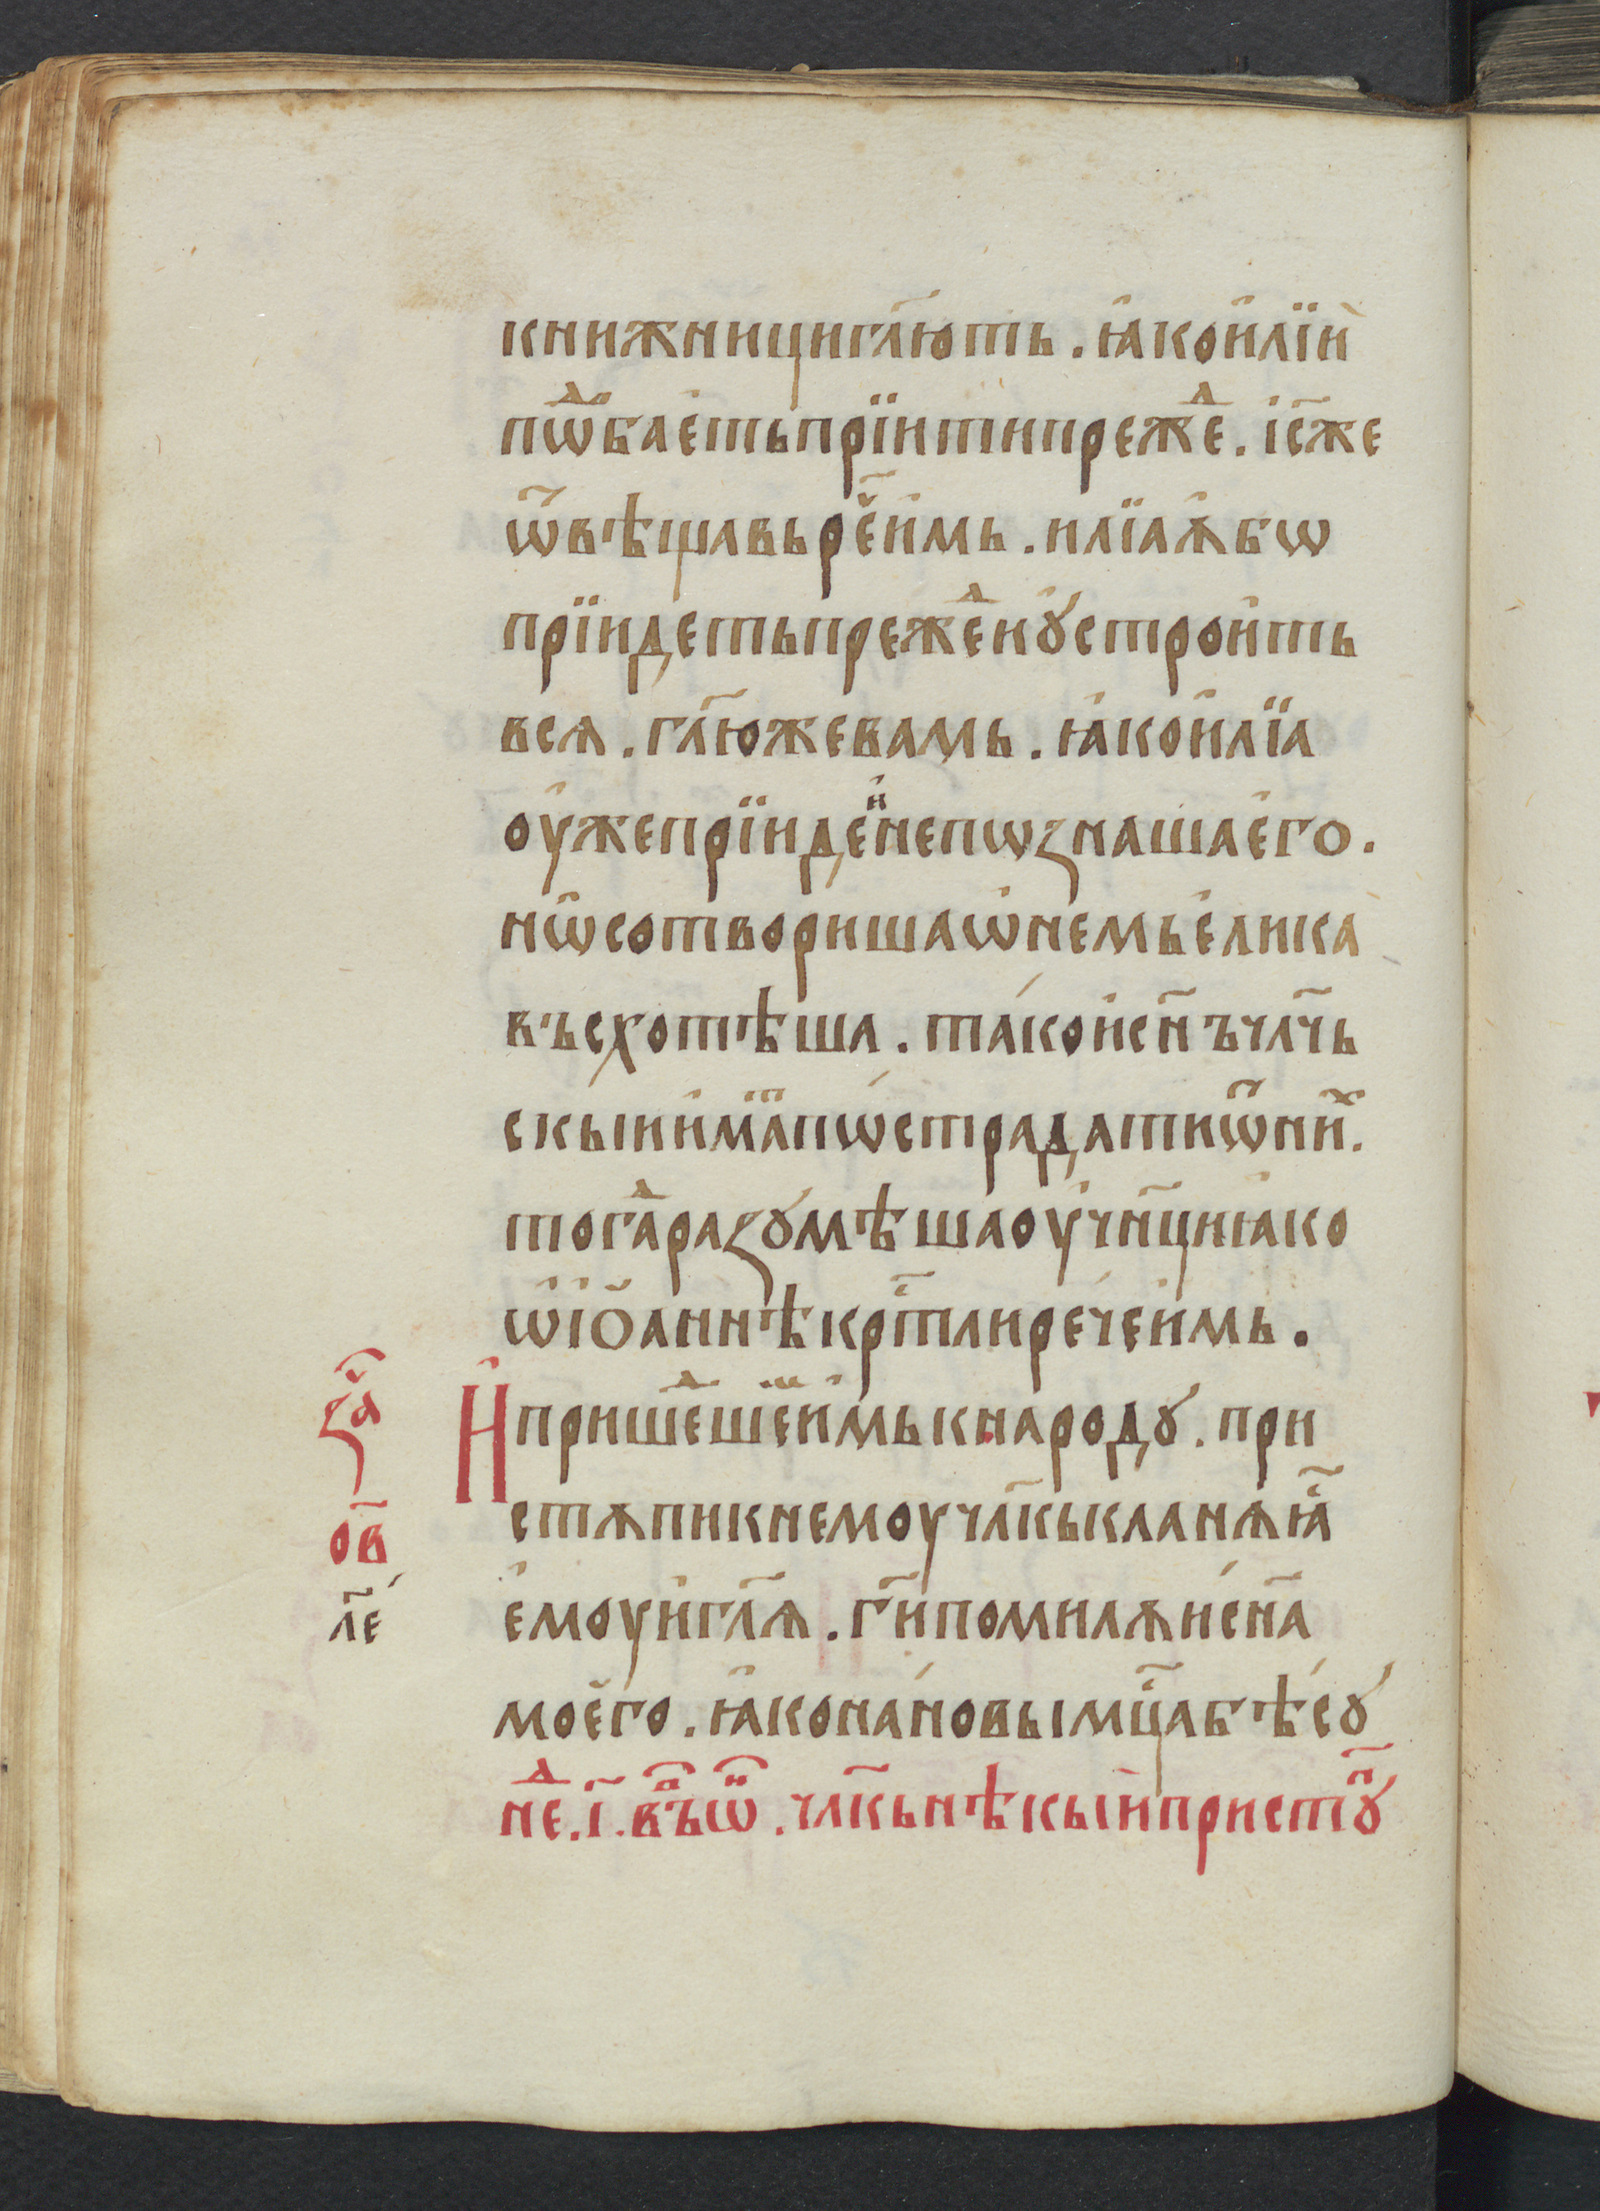 книжници гл҃ють . ꙗко илїи
пѡⷣбаеть прїити прежⷣе . іс҃ же
ѿвѣщавь реⷱ҇ имь . илїа ѫбѡ
прїидеть прежⷣе и ꙋстроить
всѧ . гл҃ю же вамь . ꙗко илїа
оуже прїиде и не пѡзнаша его .
нѡ сотвориша ѡ немь елика
въсхотѣша . тако и сн҃ъ чл҃чь
скыи имать пѡстрадати ѿ ниⷯ .
тогⷣа разꙋмѣша оучн҃ци ꙗко
ѡ іѡаннѣ крⷭ҇тли рече имь .
за҃
И пришеⷣшеⷨ имь к народꙋ . при
ѻв҃
стѫпи к немоу чл҃кь кланѧꙗⷭ҇
л҃е
емоу и гл҃ѧ . гн҃ помилѫи сн҃а
моего . ꙗко на новы мцⷭ҇а бѣсꙋ
неⷣ . і҃ . въ ѡ҃ⷩ . чл҃кь нѣкыи пристꙋⷫ